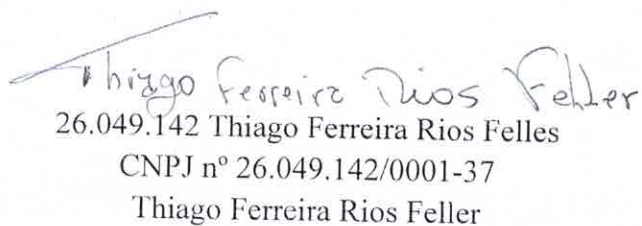 Thiago Ferreira Rios Feller
26.049.142 Thiago Ferreira Rios Felles
CNPJ nº 26.049.142/0001-37
Thiago Ferreira Rios Feller